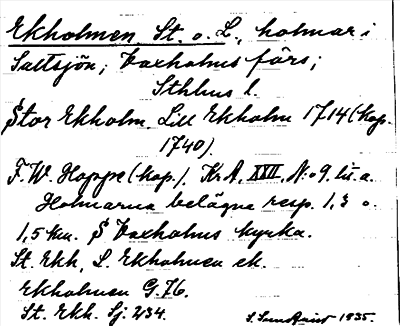 Ekholmen, St. o. L., holmar i
Saltsjön; Vaxholms förs;
Sthlms l.
Stor Ekholm. Lill Ekholm 1714 (kop.
1740).
F.W. Hoppe (kop.). Kr.A. XXII. N:o 9. lit. a.
Holmarna belägna resp. 1,3 o.
1,5 km. S Vaxholms kyrka.
St. Ekh, L. Ekholmen ek.
Ekholmen G. 76.
St. Ekh. Sj. 234.
1935.